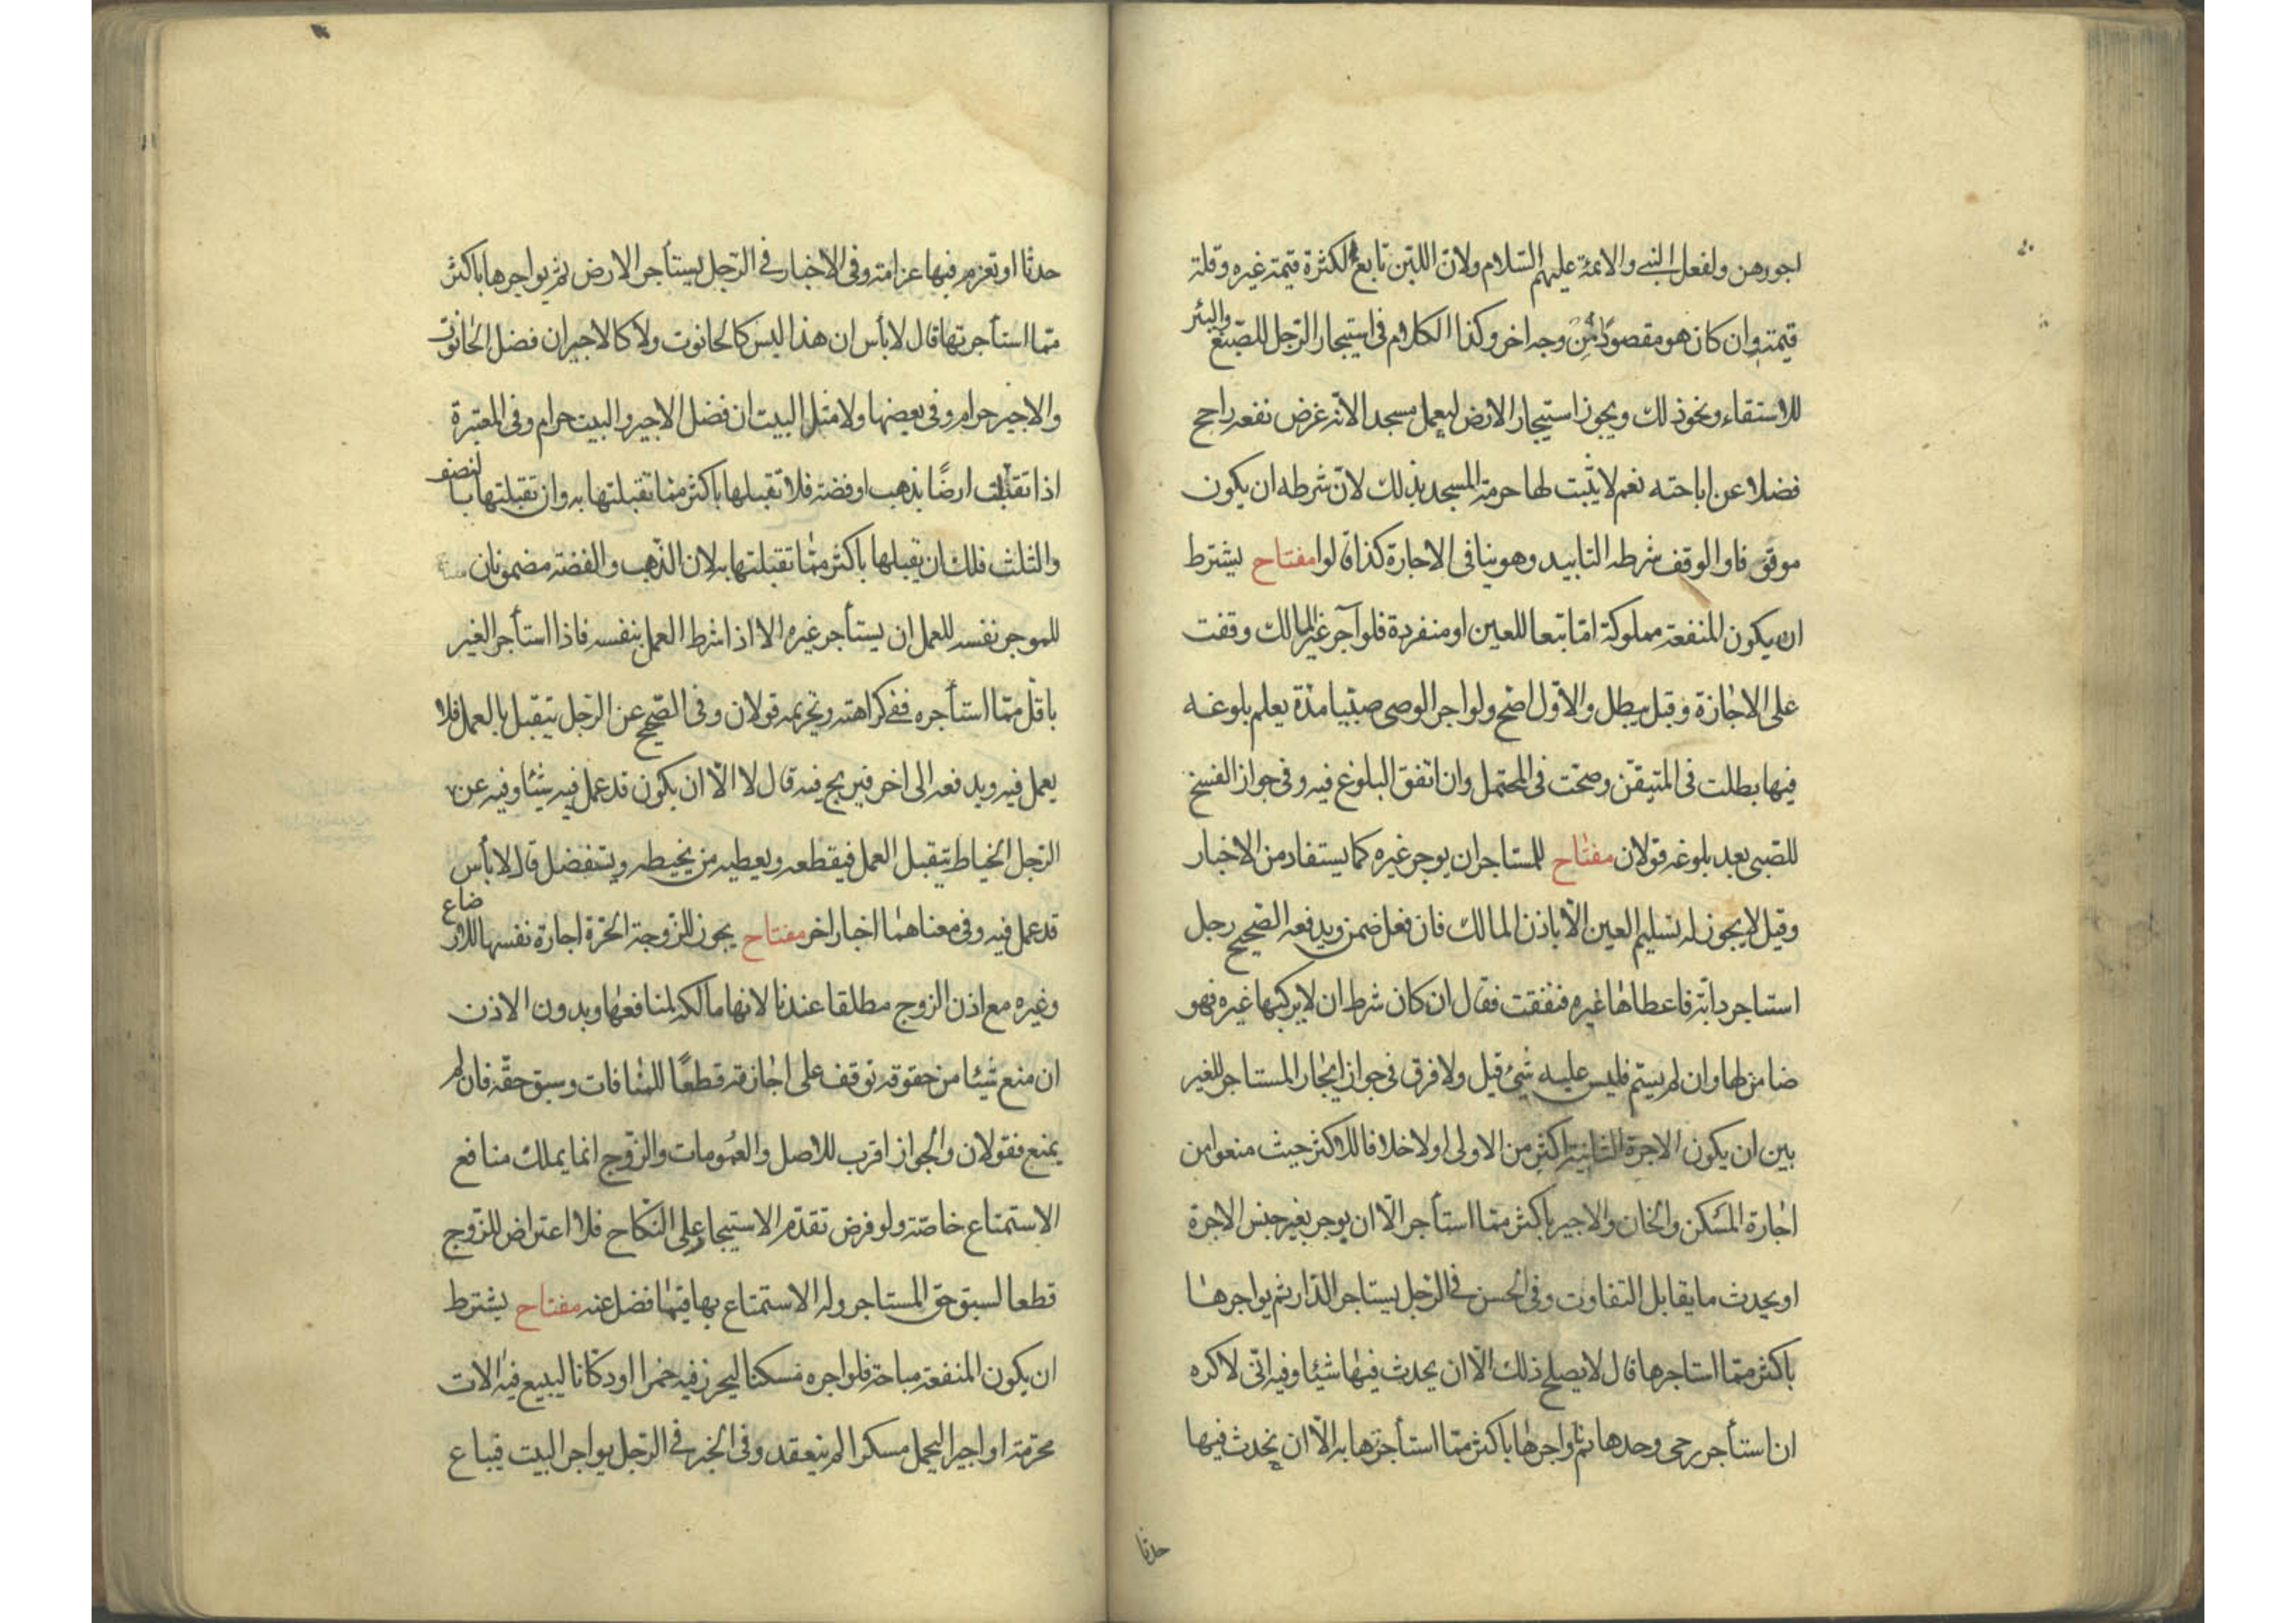 اجورهن ولفعل النبي والائمة عليهم السلام ولان اللبن تابع لكثرة قيمة غيره وقلة
قيمته وان كان هو مقصودا من وجه اخر وكذا الكلام في استيجار الرجل للصبغ والبئر
للاستقاء ونحو ذلك ويجوز استيجار الارض ليعمل مسجدا لانه غرض نفعه راجح
فضلا عن اباحته نعم لا يثبت لها حرمة المسجد بذلك لان شرطه ان يكون
موقوفا والوقف شرطه التابيد وهو ينافي الاجارة كذا قالوا مفتاح يشترط
ان يكون المنفعة مملوكة اما تبعا للعين او منفردة فلو آجر غير المالك وقفت
على الاجازة وقيل يبطل والاول اصح ولو اجر الوصي صبيا مدة يعلم بلوغه
فيها بطلت في المتيقن وصحت في المحتمل وان اتفق البلوغ فيه وفي جواز الفسخ
للصبي بعد بلوغه قولان مفتاح للمستاجر ان يوجر غيره كما يستفاد من الاخبار
وقيل لا يجوز له تسليم العين الا باذن المالك فان فعل ضمن ويدفعه الصحيح رجل
استاجر دابة فاعطاها غيره فنفقت فقال ان كان شرط ان لا يركبها غيره فهو
ضامن لها وان لم يسم فليس عليه شئ قيل ولا فرق في جواز ايجار المستاجر للغير
بين ان يكون الاجرة الثانية اكثر من الاولى او لا خلافا للاكثر حيث منعوا من
اجارة المسكن والخان والاجير باكثر مما استأجر الا ان يوجر بغير جنس الاجرة
او يحدث ما يقابل التفاوت وفي الحسن في الرجل يستاجر الدار ثم يواجرها
باكثر مما استاجرها قال لا يصلح ذلك الا ان يحدث فيها شيئا وفيه اني لاكره
ان استأجر رحى وحدها ثم اواجرها باكثر مما استأجرتها به الا ان يحدث فيها
حدثا
حدثا او تغرم فيها غرامة وفي الاخبار في الرجل يستأجر الارض ثم يواجرها باكثر
مما استأجرتها قال لا بأس ان هذا ليس كالحانوت ولا كالاجير ان فضل الحانوت
والاجير حرام وفي بعضها ولا مثل البيت ان فضل الاجير والبيت حرام وفي المعتبرة
اذا تقبلت ارضا بذهب او فضة فلا تقبلها باكثر مما تقبلتها به وان تقبلتها بالنصف
والثلث فلك ان تقبلها باكثر مما تقبلتها به لان الذهب والفضة مضمونان
للموجر نفسه للعمل ان يستأجر غيره الا اذا شرط العمل بنفسه فاذا استأجر الغير
باقل مما استأجره ففي كراهته وتحريمه قولان وفي الصحيح عن الرجل يتقبل بالعمل فلا
يعمل فيه ويدفعه الى اخر فيربح فيه قال لا الا ان يكون قد عمل فيه شيئا وفيه عن
الرجل الخياط يتقبل العمل فيقطعه ويعطيه من يخيطه ويستفضل قال لا بأس
قد عمل فيه وفي معناهما اخبار اخر مفتاح يجوز للزوجة الحرة اجارة نفسها للارضاع
وغيره مع اذن الزوج مطلقا عندنا لانها مالكة لمنافعها وبدون الاذن
ان منع شيئا من حقوقه توقف على اجازته قطعا للمنافات وسبق حقه فان لم
يمنع فقولان والجواز اقرب للاصل والعمومات والزوج انما يملك منافع
الاستمتاع خاصة ولو فرض تقدم الاستيجار على النكاح فلا اعتراض للزوج
قطعا لسبق حق المستاجر وله الاستمتاع بها فيما فضل عنه مفتاح يشترط
ان يكون المنفعة مباحة فلو اجره مسكنا ليحرز فيه خمرا او دكانا ليبيع فيه الات
محرمة او اجيرا ليحمل مسكرا لم ينعقد وفي الخبر في الرجل يواجر البيت فيباع